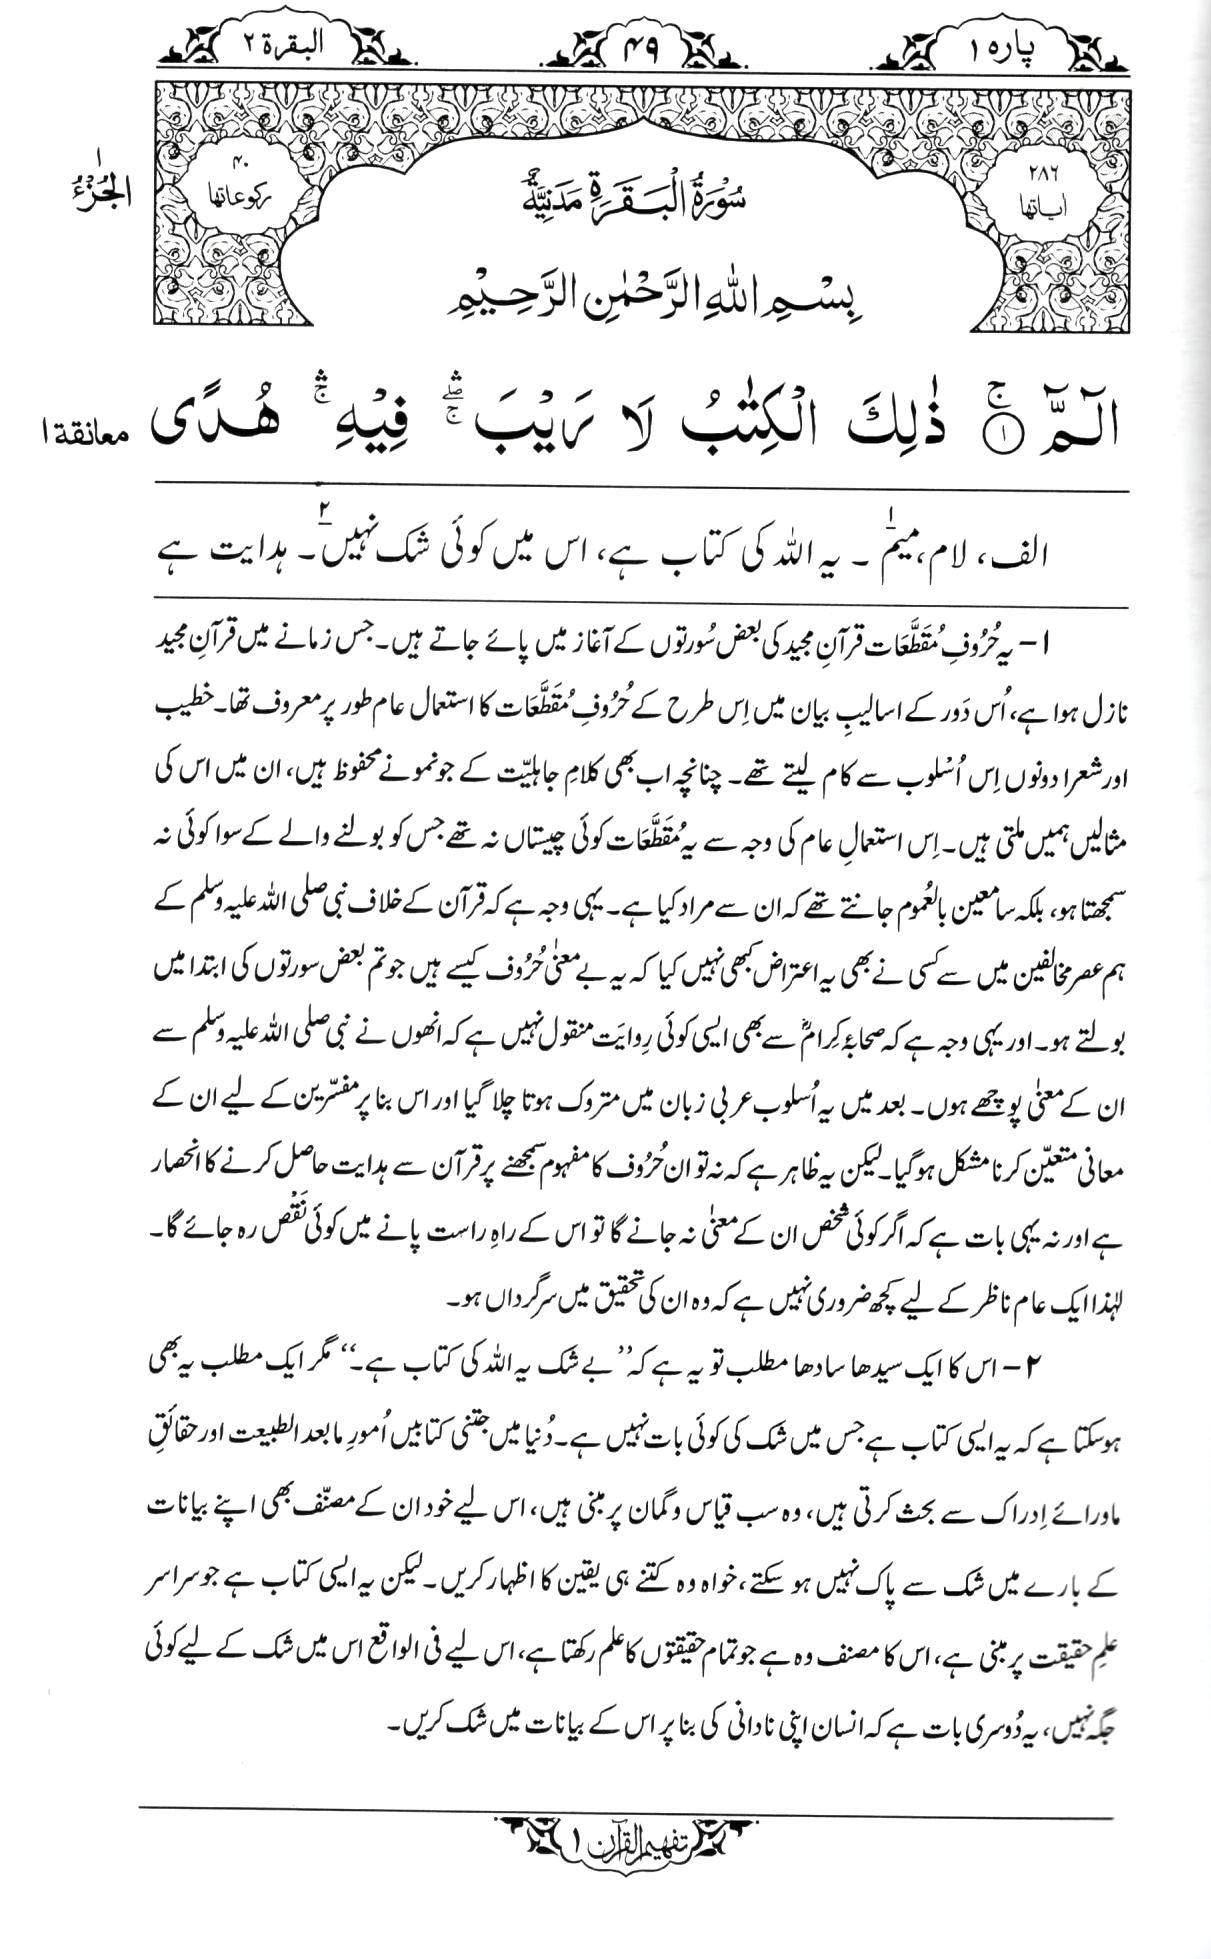 پارہ ۱
۴۹
البقرة ۲
۲۸۶
اٰیاتها
سُوْرَةُ الْبَقَرَةِ مَدَنِيَّةٌ
۴۰
رکوعاتها
بِسْمِ اللّٰهِ الرَّحْمٰنِ الرَّحِيْمِ
۱
الجُزْءُ
الٓمّٓ ۚ ۱ ذٰلِكَ الْكِتٰبُ لَا رَيْبَ ۛۖۚ فِيْهِ ۛۚ هُدًى
معانقة ۱
الف، لام، میم۱۔ یہ اللہ کی کتاب ہے، اس میں کوئی شک نہیں۲۔ ہدایت ہے
۱ – یہ حُرُوفِ مُقَطَّعَات قرآنِ مجید کی بعض سُورتوں کے آغاز میں پائے جاتے ہیں۔ جس زمانے میں قرآنِ مجید
نازل ہوا ہے، اُس دَور کے اسالیبِ بیان میں اِس طرح کے حُرُوفِ مُقَطَّعَات کا استعمال عام طور پر معروف تھا۔ خطیب
اور شعرا دونوں اِس اُسْلوب سے کام لیتے تھے۔ چنانچہ اب بھی کلامِ جاہلیّت کے جو نمونے محفوظ ہیں، ان میں اس کی
مثالیں ہمیں ملتی ہیں۔ اِس استعمالِ عام کی وجہ سے یہ مُقَطَّعَات کوئی چیستاں نہ تھے جس کو بولنے والے کے سوا کوئی نہ
سمجھتا ہو، بلکہ سامعین بالعُموم جانتے تھے کہ ان سے مراد کیا ہے۔ یہی وجہ ہے کہ قرآن کے خلاف نبی صلی اللہ علیہ وسلم کے
ہم عصر مخالفین میں سے کسی نے بھی یہ اعتراض کبھی نہیں کیا کہ یہ بے معنیٰ حُرُوف کیسے ہیں جو تم بعض سورتوں کی ابتدا میں
بولتے ہو۔ اور یہی وجہ ہے کہ صحابۂ کِرامؓ سے بھی ایسی کوئی رِوایَت منقول نہیں ہے کہ انھوں نے نبی صلی اللہ علیہ وسلم سے
ان کے معنیٰ پوچھے ہوں۔ بعد میں یہ اُسلوب عربی زبان میں متروک ہوتا چلا گیا اور اس بنا پر مفسّرین کے لیے ان کے
معانی متعیّن کرنا مشکل ہو گیا۔ لیکن یہ ظاہر ہے کہ نہ تو ان حُرُوف کا مفہوم سمجھنے پر قرآن سے ہدایت حاصل کرنے کا انحصار
ہے اور نہ یہی بات ہے کہ اگر کوئی شخص ان کے معنیٰ نہ جانے گا تو اس کے راہِ راست پانے میں کوئی نَقْص رہ جائے گا۔
لہٰذا ایک عام ناظر کے لیے کچھ ضروری نہیں ہے کہ وہ ان کی تحقیق میں سرگرداں ہو۔
۲ – اس کا ایک سیدھا سادھا مطلب تو یہ ہے کہ ’’بے شک یہ اللہ کی کتاب ہے۔‘‘ مگر ایک مطلب یہ بھی
ہو سکتا ہے کہ یہ ایسی کتاب ہے جس میں شک کی کوئی بات نہیں ہے۔ دُنیا میں جتنی کتابیں اُمورِ مابعد الطبیعت اور حقائقِ
ماورائے اِدراک سے بحث کرتی ہیں، وہ سب قیاس و گمان پر مبنی ہیں، اس لیے خود ان کے مصنّف بھی اپنے بیانات
کے بارے میں شک سے پاک نہیں ہو سکتے، خواہ وہ کتنے ہی یقین کا اظہار کریں۔ لیکن یہ ایسی کتاب ہے جو سراسر
علمِ حقیقت پر مبنی ہے، اس کا مصنف وہ ہے جو تمام حقیقتوں کا علم رکھتا ہے، اس لیے فی الواقع اس میں شک کے لیے کوئی
جگہ نہیں، یہ دُوسری بات ہے کہ انسان اپنی نادانی کی بنا پر اس کے بیانات میں شک کریں۔
تفہیم القرآن ۱